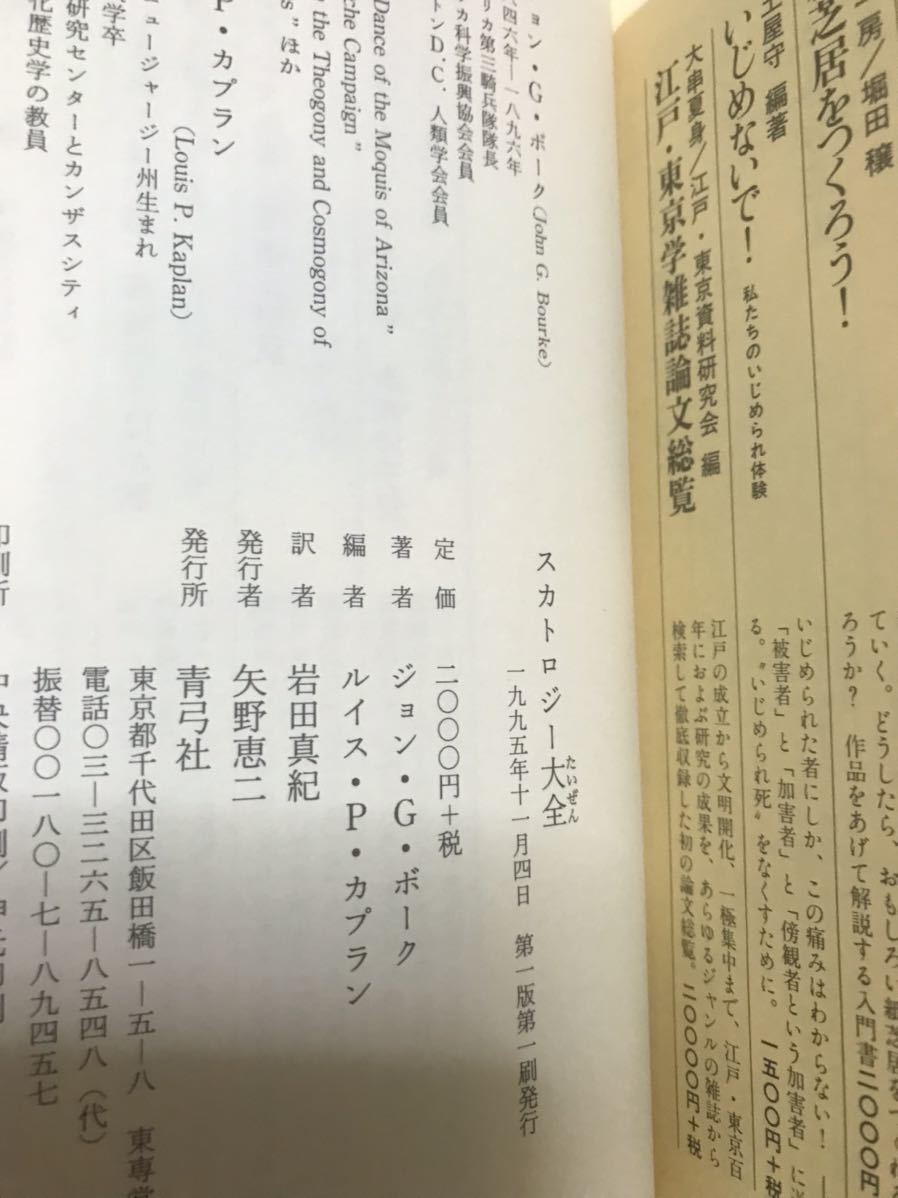 房/堀田 穣
芝居をつくろう!
ていく。どうしたら、おもしろい紙芝居を
ろうか? 作品をあげて解説する入門書 二〇〇〇円
土屋守 編著
いじめないで! 私たちのいじめられ体験
いじめられた者にしか、この痛みはわからない!
「被害者」と「加害者」と「傍観者という加害者」に
る。〝いじめられ死〟をなくすために。 一五〇〇円+税
大串夏身/江戸・東京資料研究会 編
江戸・東京学雑誌論文総覧
江戸の成立から文明開化、一極集中まで、江戸・東京百
年におよぶ研究の成果を、あらゆるジャンルの雑誌から
検索して徹底収録した初の論文総覧。 二〇〇〇〇円+税
ョン・G・ボーク(John G. Bourke)
四六年―一八九六年
リカ第三騎兵隊隊長
カ科学振興協会会員
トンD.C.人類学会会員
Dance of the Moquis of Arizona”
che Campaign”
the Theogony and Cosmogony of
s”ほか
P・カプラン
(Louis P. Kaplan)
ュージャージー州生まれ
学卒
研究センターとカンザスシティ
化歴史学の教員
スカトロジー大全
たいぜん
一九九五年十一月四日 第一版第一刷発行
定価 二〇〇〇円+税
著者 ジョン・G・ボーク
編者 ルイス・P・カプラン
訳者 岩田真紀
発行者 矢野恵二
発行所 青弓社
東京都千代田区飯田橋一―五―八 東専堂
電話〇三―三二六五―八五四八(代)
振替〇〇一八〇―七―八九四五七
印刷所